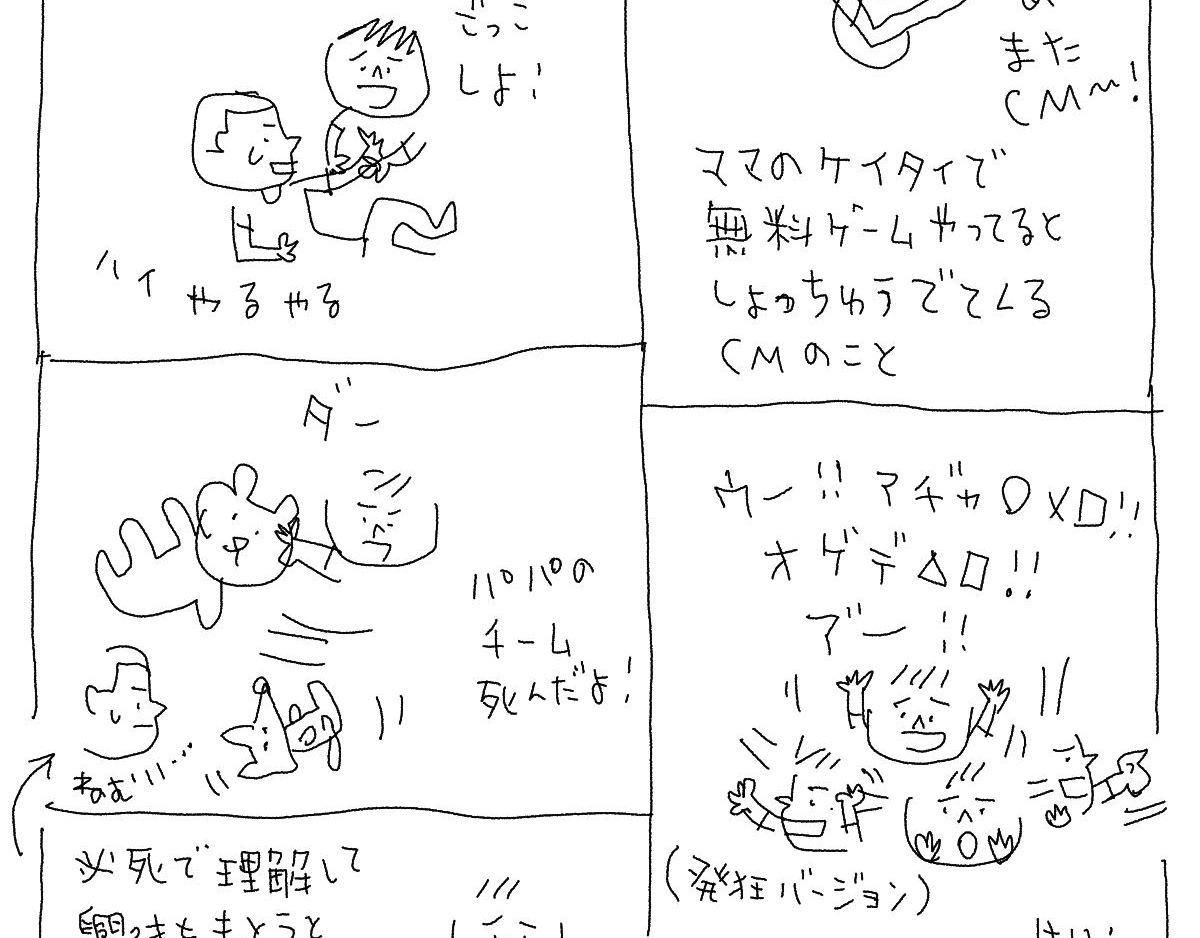 また
CM〜!
ママのケイタイで
無料ゲームやってると
しょっちゅうでてくる
CMのこと
ウー!!アギャ○×□!!
オゲデ△□!!
ブー!!
(発狂バージョン)
ごっこ
しよ!
ハイ
やるやる
ダー
パパの
チーム
死んだよ!
ねむ……
必死で理解して